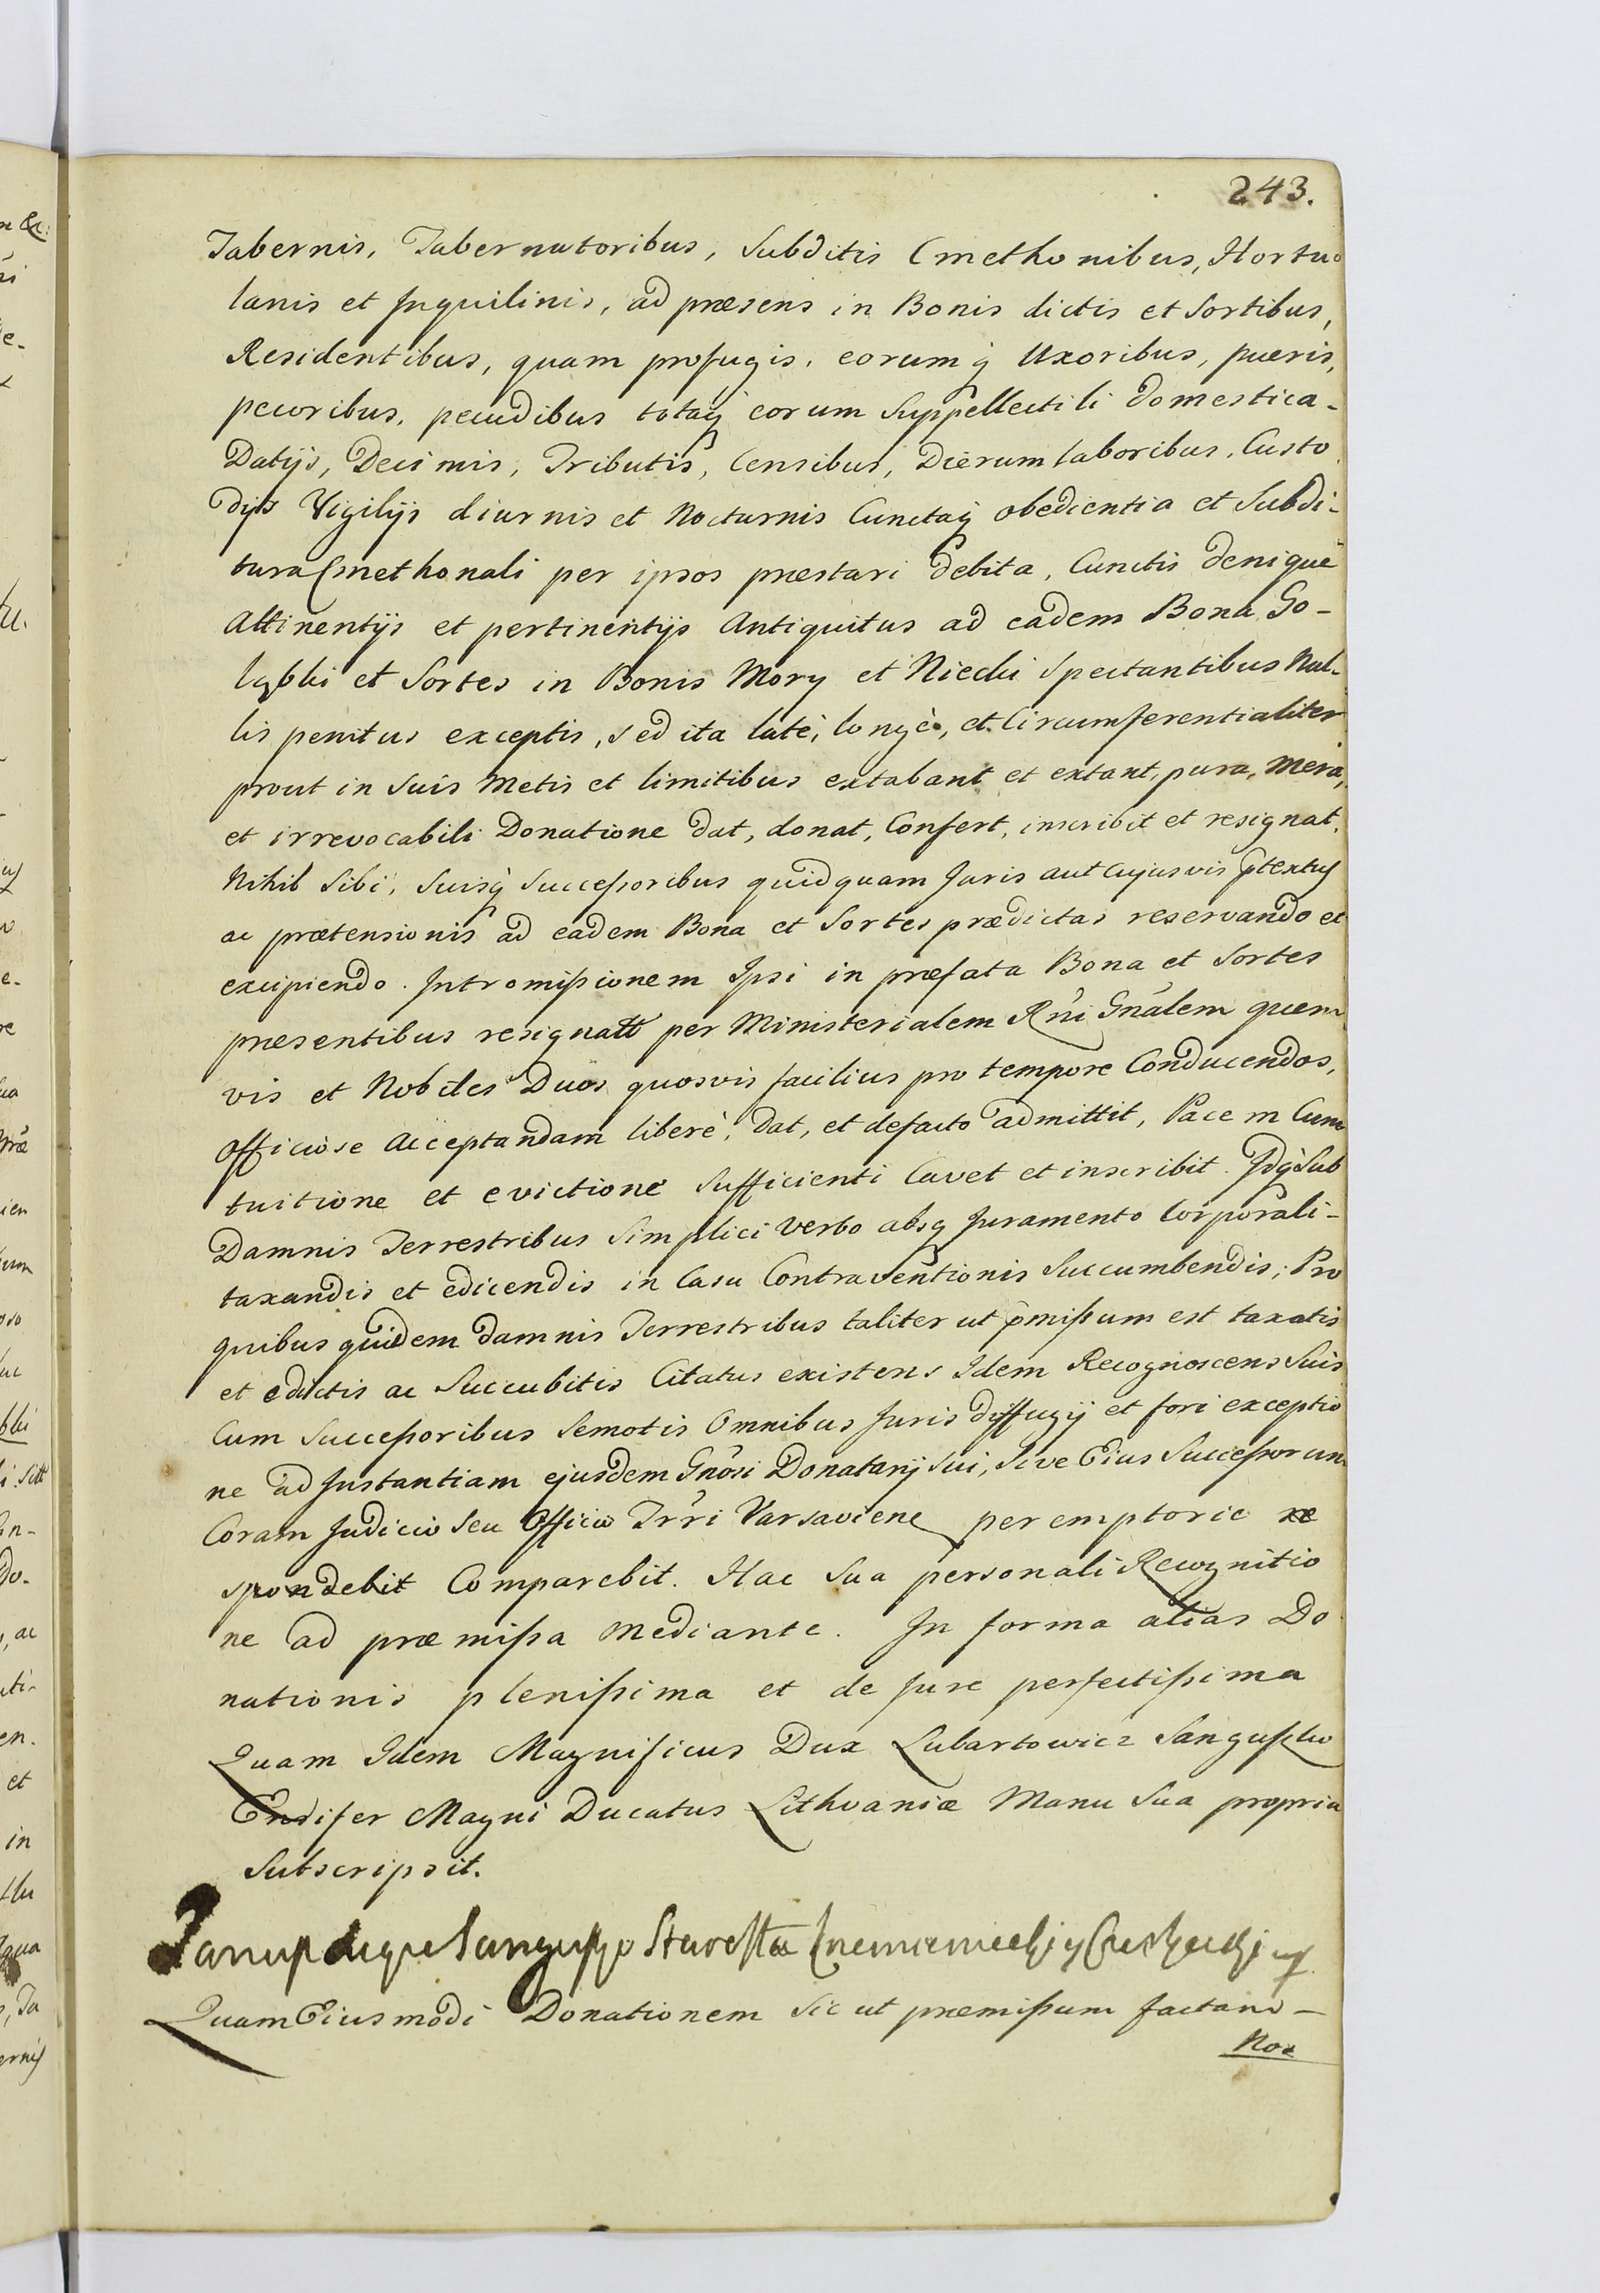 243.
Tabernis, Tabernatoribus, Subditis Cmethonibus, Hortu
lanis et Inquilinis, ad præsens in Bonis dictis et Sortibus,
Residentibus, quam profugis, eorumq̃ Uxoribus, pueris,
pecoribus, pecudibus totaq̃ eorum Suppellectili domestica-
Datijs, Decimis, Tributis, Censibus, Dierum laboribus, Custo
dijs Vigilijs diurnis et Nocturnis Cunctaq̃ obedientia et Subdi-
tura Cmethonali per ipsos præstari debita, Cunctis denique
Attinentijs et pertinentijs Antiquitus ad eadem Bona Go-
ląbki et Sortes in Bonis Mory et Niecki Spectantibus Nul-
lis penitus exceptis, sed ita latè, longè, et Circumferentialiter
prout in Suis Metis et limitibus extabant et extant, pura, mera,
et irrevocabili Donatione dat, donat, Confert, inscribit et resignat.
Nihil Sibi, Suisq̃ Succeßoribus quidquam Juris aut Cujusvis p̃textus
ac prætensionis ad eadem Bona et Sortes prædictas reservando et
excipiendo. Intromißionem Ipsi in præfata Bona et Sortes
præsentibus resignatt per Ministerialem Rñi Gñalem quem
vis et Nobiles Duos quosvis facilius pro tempore Conducendos,
Officiose acceptandam liberè, dat, et defacto admittit, Pacem Cum
tuitione et evictione Sufficienti Cavet et inscribit. Idq̃ Sub
Damnis Terrestribus Simplici verbo absq̃ Juramento Corporali-
taxandis et edicendis in Casu Contraventionis Succumbendis; Pro
quibus quidem damnis Terrestribus taliter ut p̃mißum est taxatis
et edictis ac Succubitis Citatus existens Idem Recognoscens Suis
Cum Succeßoribus Semotis Omnibus Juris diffugij et fori exceptio
ne ad Instantiam ejusdem Gñosi Donatarij Sui, Sive Eius Succeßorum
Coram Judicio Seu Officio Trri Varsaviene peremptorie re
spondebit Comparebit. Hac Sua personali Recognitio
ne ad præmißa mediante. In forma alias Do
nationis plenißima et de Jure perfectißima
Quam Idem Magnificus Dux Lubartowicz Sanguszko
Ensifer Magni Ducatus Lithvaniæ Manu Sua propria
Subscripsit.
Sanguszko Starosta
Quam Eiusmodi Donationem Sic ut præmißum factam-
Nos